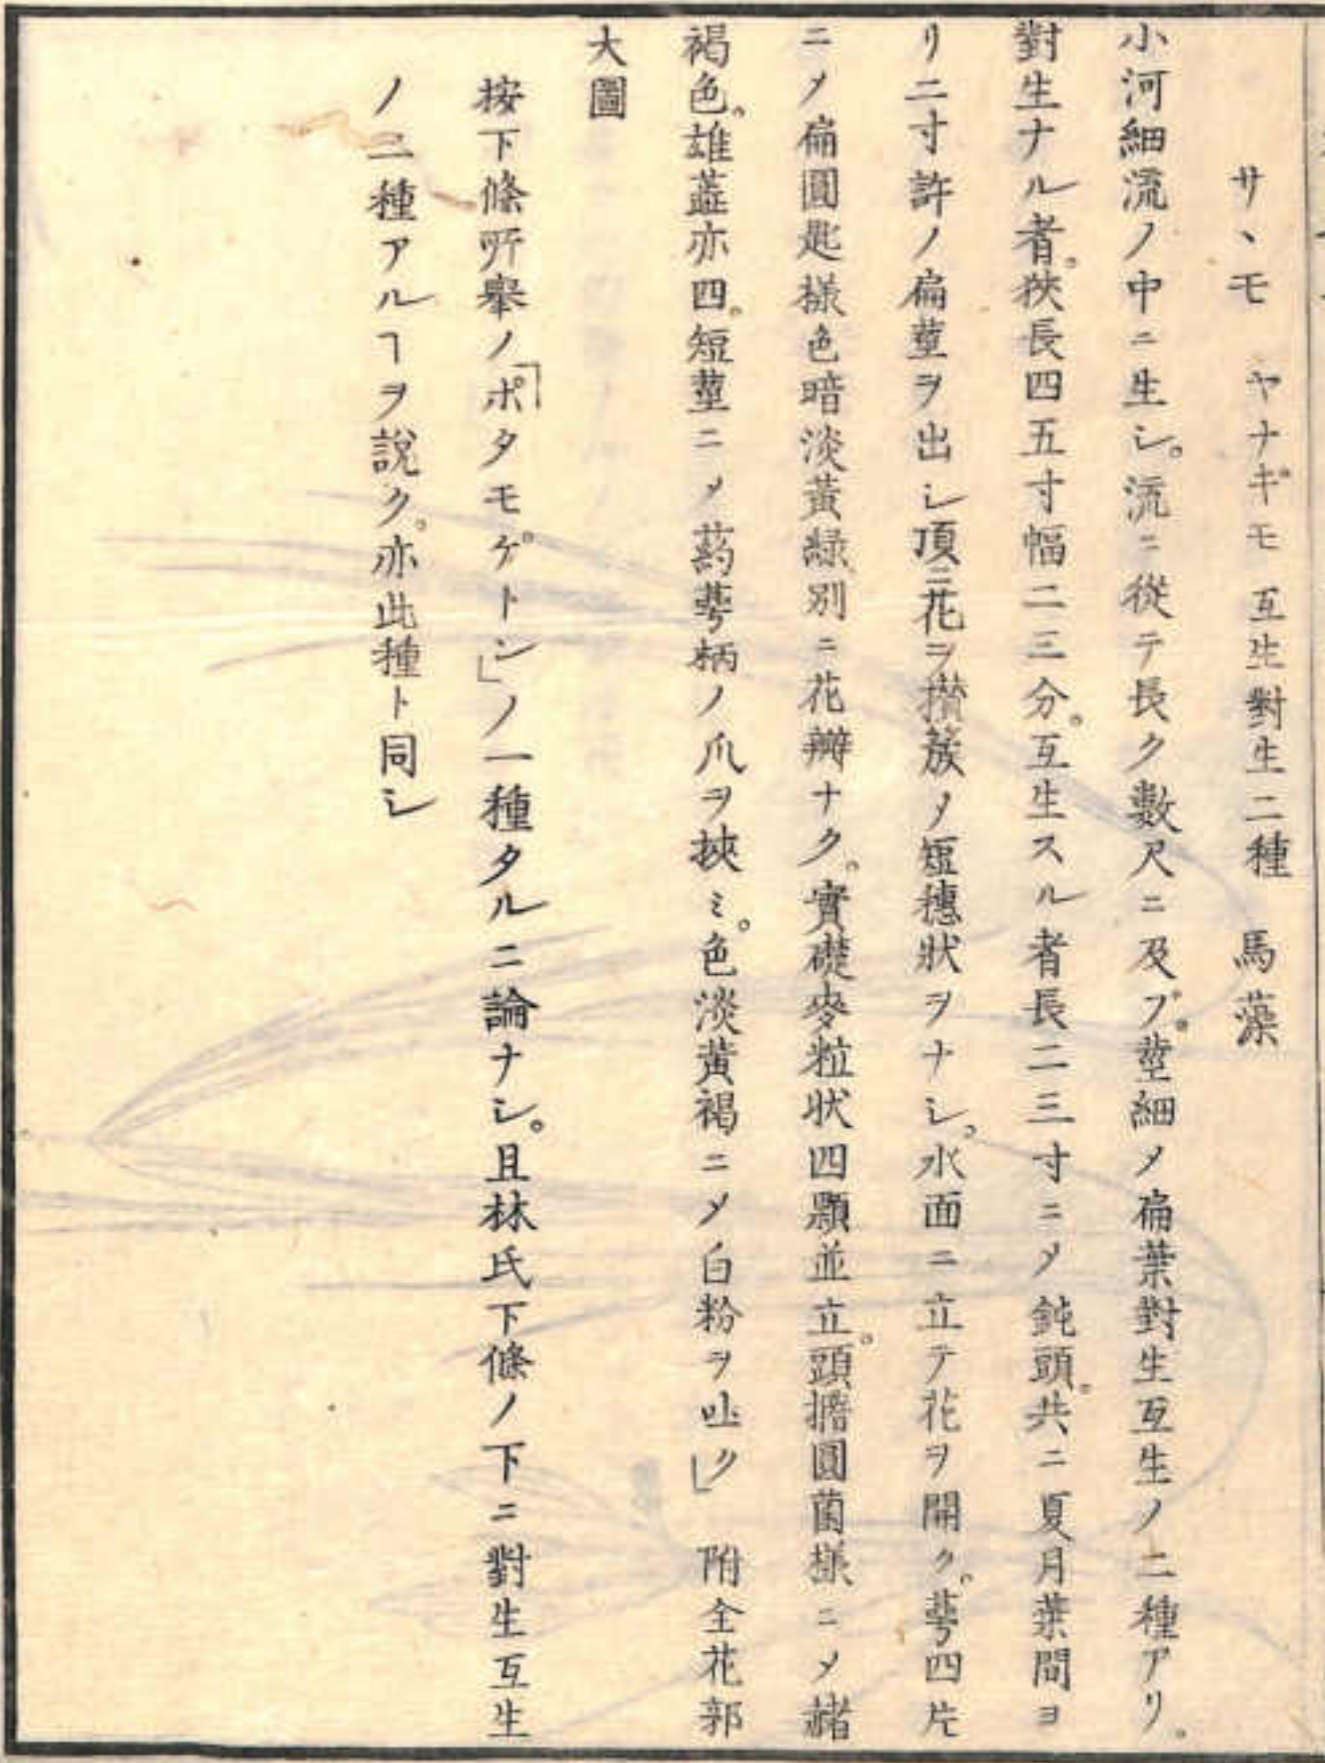 サヽモ ヤナギモ 互生對生二種 馬藻
小河細流ノ中ニ生シ。流ニ從テ長ク數尺ニ及フ。莖細メ扁葉對生互生ノ二種アリ。
對生ナル者。狹長四五寸幅二三分。互生スル者長二三寸ニメ鈍頭。共ニ夏月葉間ヨ
リ二寸許ノ扁莖ヲ出シ頂ニ花ヲ攅簇メ短穗狀ヲナシ。水面ニ立テ花ヲ開ク。萼四片
ニメ扁圓匙樣色暗淡黃綠別ニ花瓣ナク。實礎麥粒状四顆並立。頭擔圓菌樣ニメ赭
褐色。雄蕋亦四。短莖ニメ葯萼柄ノ爪ヲ挾ミ。色淡黃褐ニメ白粉ヲ吐ク」 附全花郭
大圖
按下條所舉ノ「ポタモゲトン」ノ一種タルニ論ナシ。且林氏下條ノ下ニ對生互生
ノ二種アルヿヲ說ク。亦此種ト同シ